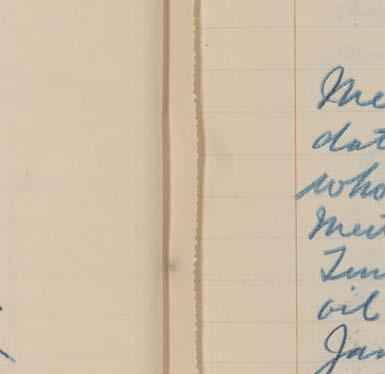 Me
dat
who
Meu
Tem
oil
Jan